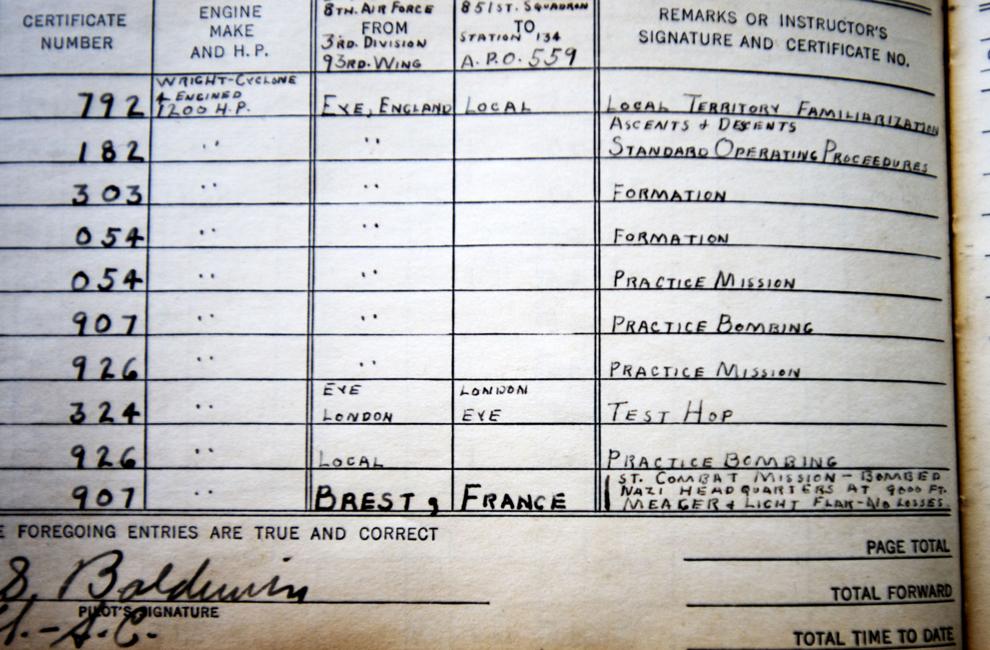 CERTIFICATE NUMBER
ENGINE MAKE AND H.P.
8TH. AIR FORCE FROM 3RD. DIVISION 93RD. WING
851ST. SQUADRON TO STATION 134 A.P.O. 559
REMARKS OR INSTRUCTOR'S SIGNATURE AND CERTIFICATE NO.
792 WRIGHT-CYCLONE 4 ENGINED 1200 H.P. EYE, ENGLAND LOCAL LOCAL TERRITORY FAMILIARIZATION
ASCENTS & DESCENTS
182 " " STANDARD OPERATING PROCEEDURES
303 " " FORMATION
054 " " FORMATION
054 " " PRACTICE MISSION
907 " " PRACTICE BOMBING
926 " " PRACTICE MISSION
EYE LONDON
324 " LONDON EYE TEST HOP
926 " LOCAL PRACTICE BOMBING
907 " BREST, FRANCE 1ST. COMBAT MISSION - BOMBED
NAZI HEADQUARTERS AT 9000 FT.
MEAGER & LIGHT FLAK-NO LOSSES.
E FOREGOING ENTRIES ARE TRUE AND CORRECT
PAGE TOTAL
S. Baldwin
TOTAL FORWARD
PILOT'S SIGNATURE
TOTAL TIME TO DATE